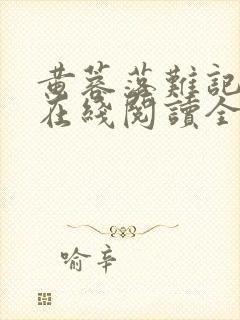 黄蓉落難記
在綫閱讀全
喻辛